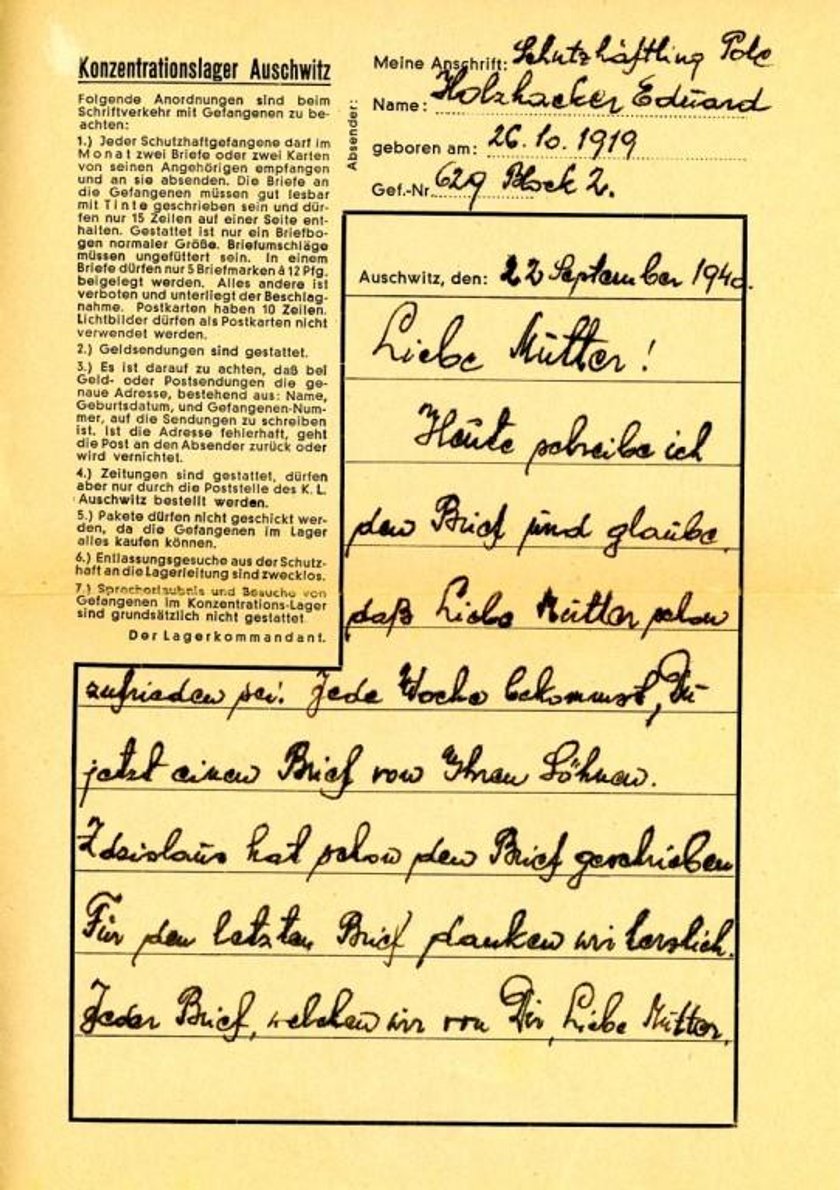 Konzentrationslager Auschwitz
Folgende Anordnungen sind beim
Schriftverkehr mit Gefangenen zu be-
achten:
1.) Jeder Schutzhaftgefangene darf im
Monat zwei Briefe oder zwei Karten
von seinen Angehörigen empfangen
und an sie absenden. Die Briefe an
die Gefangenen müssen gut lesbar
mit Tinte geschrieben sein und dür-
fen nur 15 Zeilen auf einer Seite ent-
halten. Gestattet ist nur ein Briefbo-
gen normaler Größe. Briefumschläge
müssen ungefüttert sein. In einem
Briefe dürfen nur 5 Briefmarken à 12 Pfg.
beigelegt werden. Alles andere ist
verboten und unterliegt der Beschlag-
nahme. Postkarten haben 10 Zeilen.
Lichtbilder dürfen als Postkarten nicht
verwendet werden.
2.) Geldsendungen sind gestattet.
3.) Es ist darauf zu achten, daß bei
Geld- oder Postsendungen die ge-
naue Adresse, bestehend aus: Name,
Geburtsdatum, und Gefangenen-Num-
mer, auf die Sendungen zu schreiben
ist. Ist die Adresse fehlerhaft, geht
die Post an den Absender zurück oder
wird vernichtet.
4.) Zeitungen sind gestattet, dürfen
aber nur durch die Poststelle des K. L.
Auschwitz bestellt werden.
5.) Pakete dürfen nicht geschickt wer-
den, da die Gefangenen im Lager
alles kaufen können.
6.) Entlassungsgesuche aus der Schutz-
haft an die Lagerleitung sind zwecklos.
7.) Sprecherlaubnis und Besuche von
Gefangenen im Konzentrations-Lager
sind grundsätzlich nicht gestattet.
Der Lagerkommandant.
Absender:
Meine Anschrift: Schutzhäftling Pole
Name: Holzhacker Eduard
geboren am: 26.10.1919
Gef.-Nr. 629 Block 2.
Auschwitz, den: 22 September 1940.
Liebe Mutter!
Heute schreibe ich
den Brief und glaube,
daß Liebe Mutter schon
zufrieden sei. Jede Woche bekommst, Du
jetzt einen Brief von Ihren Söhnen.
Zdzislaus hat schon den Brief geschrieben
Für den letzten Brief danken wir herzlich.
Jeder Brief, welchen wir von Dir, Liebe Mutter,